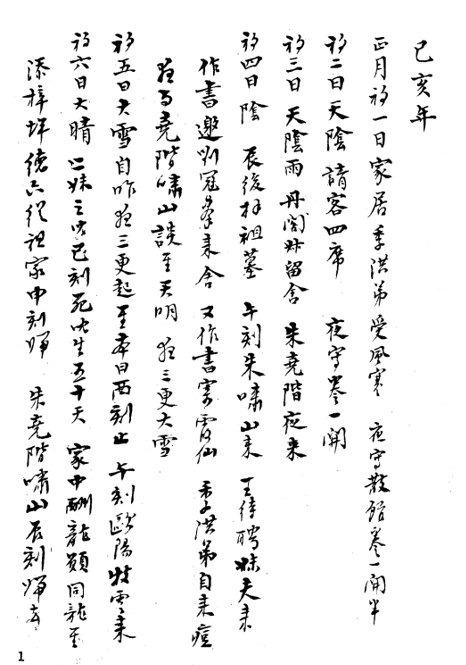 己亥年
正月初一日 家居 季洪弟受風寒 夜寫散館卷一開半
初二日 天陰 請客四席 夜寫卷一開
初三日 天陰雨 丹閣叔留舍 朱堯階夜來
初四日 陰 辰後拜祖墓 午刻朱嘯山來 王待聘妹夫來
作書邀劉冠峯來舍 又作書寄霞仙 季洪弟自來痘
夜與堯階嘯山談至天明 夜三更大雪
初五日大雪自昨夜三更起至本日酉刻止 午刻歐陽牧雲來
初六日大晴 二妹之 巳刻死 生五十天 家中酬龍願同龍至
添梓坪德六從祖家申刻歸 朱堯階嘯山辰刻歸去
1